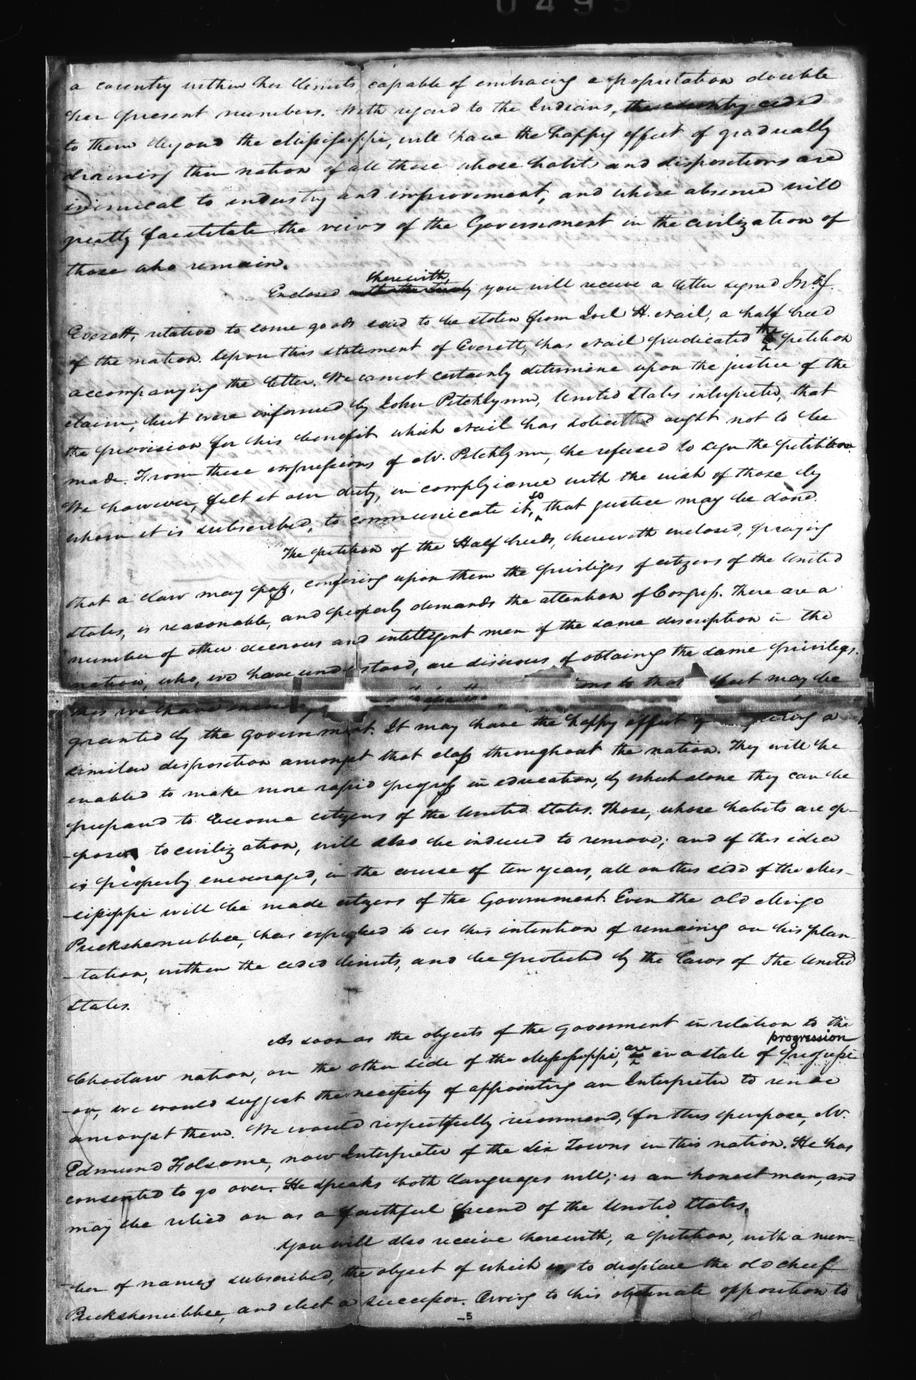 a country within her limits capable of embracing a population double
her present numbers. With regard to the Indians, the country ceded
to them beyond the Missisippi, will have the happy effect of gradually
draining their nation of all those whose habits and dispositions are
inimical to industry and improvement, and whose absence will
greatly facilitate the views of the Government in the civilization of
those who remain.
herewith
Enclosed you will receive a letter signed
Everett, relative to some goods said to be stolen from Joel H. Nail, a half breed
of the nation. Upon this statement of Everett, has Nail predicated the petition
accompanying the letter. We cannot certainly determine upon the justice of the
claim, but were informed by John Pitchlynn, United States interpreter, that
the provision for his benefit which Nail has solicitted ought not to be
made. From these expressions of Mr. Pitchlynn, he refused to sign the petition.
We however, felt it our duty, in compliance with the wish of those by
whom it is subscribed, to communicate it, so that justice may be done.
The petition of the Half breeds, herewith enclosed, praying
that a law may pass, confering upon them the privileges of citizens of the United
States, is reasonable, and properly demands the attention of Congress. There are a
number of other decorous and intelligent men of the same description in the
nation, who, we have understood, are desirous of obtaining the same privileges.
to that effect may be
granted by the government. It may have the happy effect of a
similar disposition amongst that class throughout the nation. They will be
enabled to make more rapid progress in education, by which alone they can be
prepared to become citizens of the United States. Those, whose habits are op-
-posed to civilization, will also be induced to remove; and if this idea
is properly encouraged, in the course of ten years, all on this side of the Mis-
-sisippi will be made citizens of the Government. Even the old Mingo
Puckshenubbee, has expressed to us his intention of remaining on his plan-
-tation, within the ceded limits, and be protected by the laws of the United
States.
As soon as the objects of the government in relation to the
progression
Choctaw nation, on the other side of the Missisippi, are in a state of progressi
-on, we would suggest the necessity of appointing an Interpreter to reside
amongst them. We would respectfully recommend, for this purpose, Mr.
Edmund Folsome, now Interpreter of the Six Towns in this nation. He has
consented to go over. He speaks both languages well; is an honest man, and
may be relied on as a faithful friend of the United States.
You will also receive herewith, a petition, with a num-
-ber of names subscribed, the object of which is, to displace the old chief
Puckshenubbee, and elect a successor. Owing to his obstinate opposition to
5